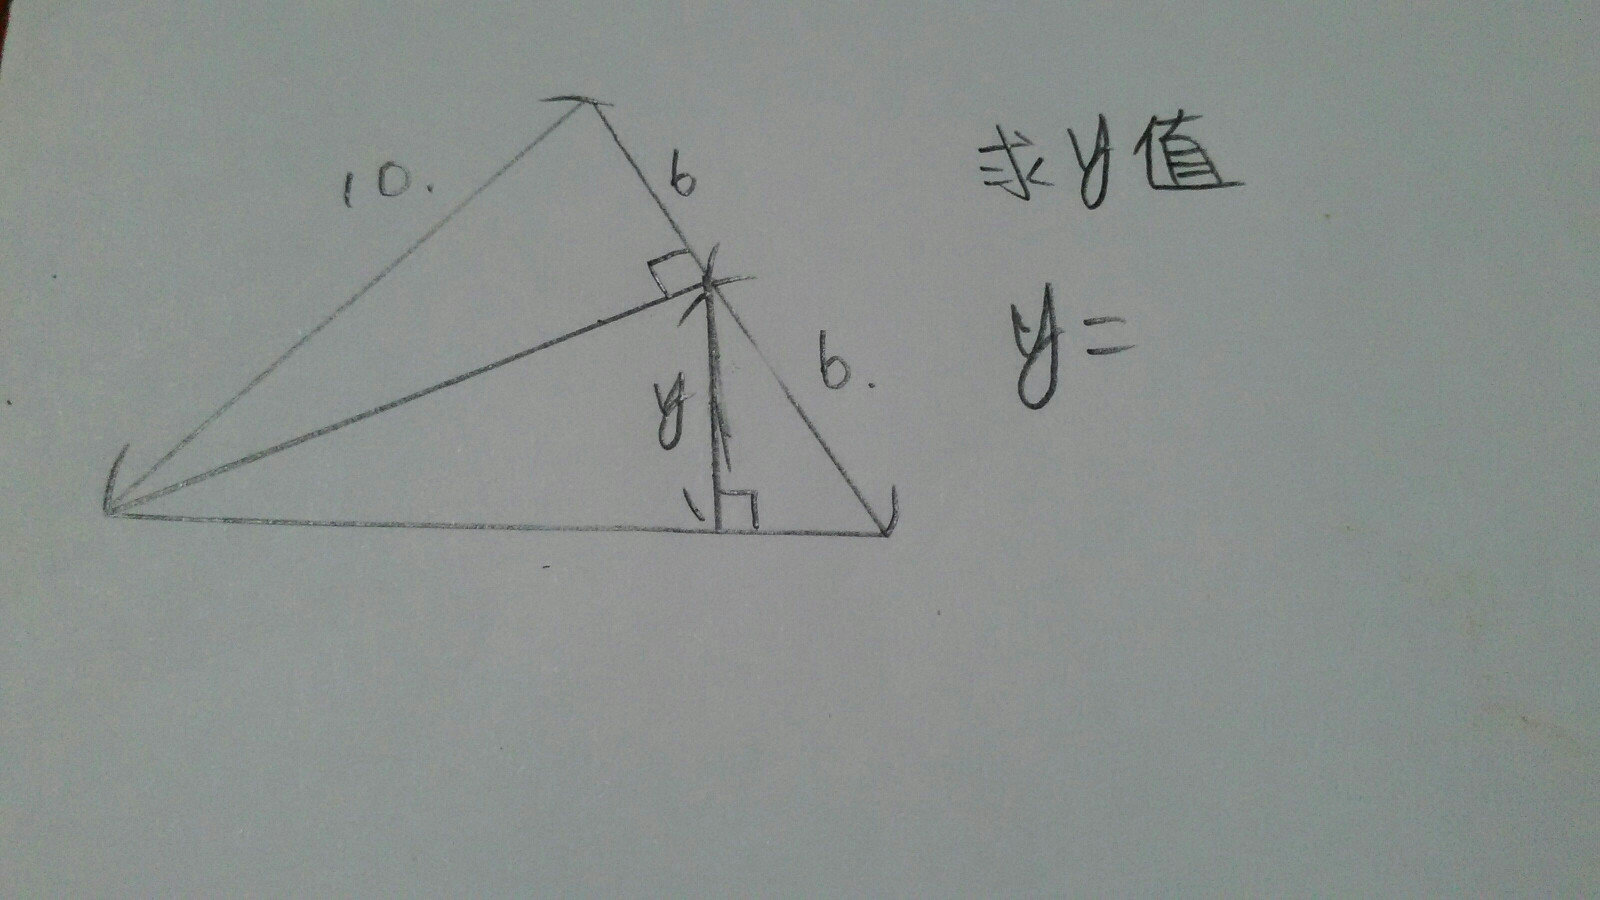 10.
6
6.
y
求y值
y=